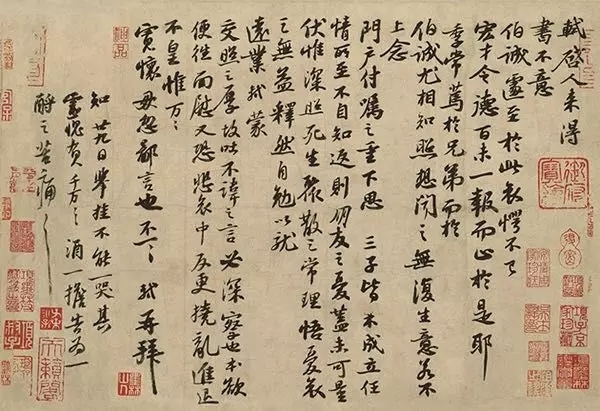 軾啓人来得
書不意
伯誠遽至於此哀愕不已
宏才令德百未一報而止於是耶
季常篤於兄弟而於
伯誠尤相知照想聞之無復生意若不
上念
門户付囑之重下思三子皆未成立任
情所至不自知返則朋友之憂蓋未可量
伏惟深照死生聚散之常理悟憂哀
之無益釋然自勉以就
遠業軾蒙
交照之厚故吐不諱之言必深察也本欲
便往面慰又恐悲哀中反更撓亂進退
不皇惟万〻
寬懷毋忽鄙言也不一〻軾再拜
知廿九日舉挂不能一哭其
靈愧負千万〻〻酒一擔告為一
酹之苦痛〻〻